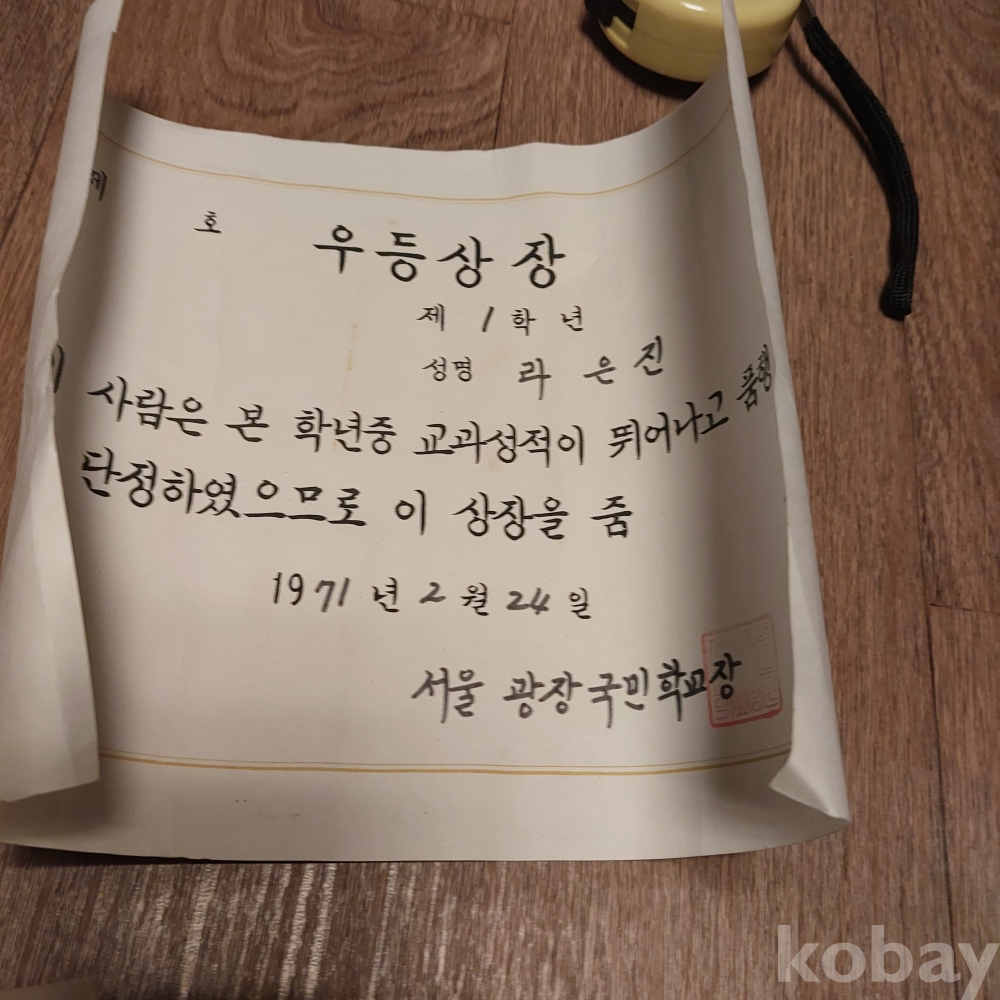 제 호
우등상장
제 1 학년
성명 라 은 진
이 사람은 본 학년중 교과성적이 뛰어나고 품행
단정하였으므로 이 상장을 줌
1971 년 2 월 24 일
서울 광장국민학교장
kobay